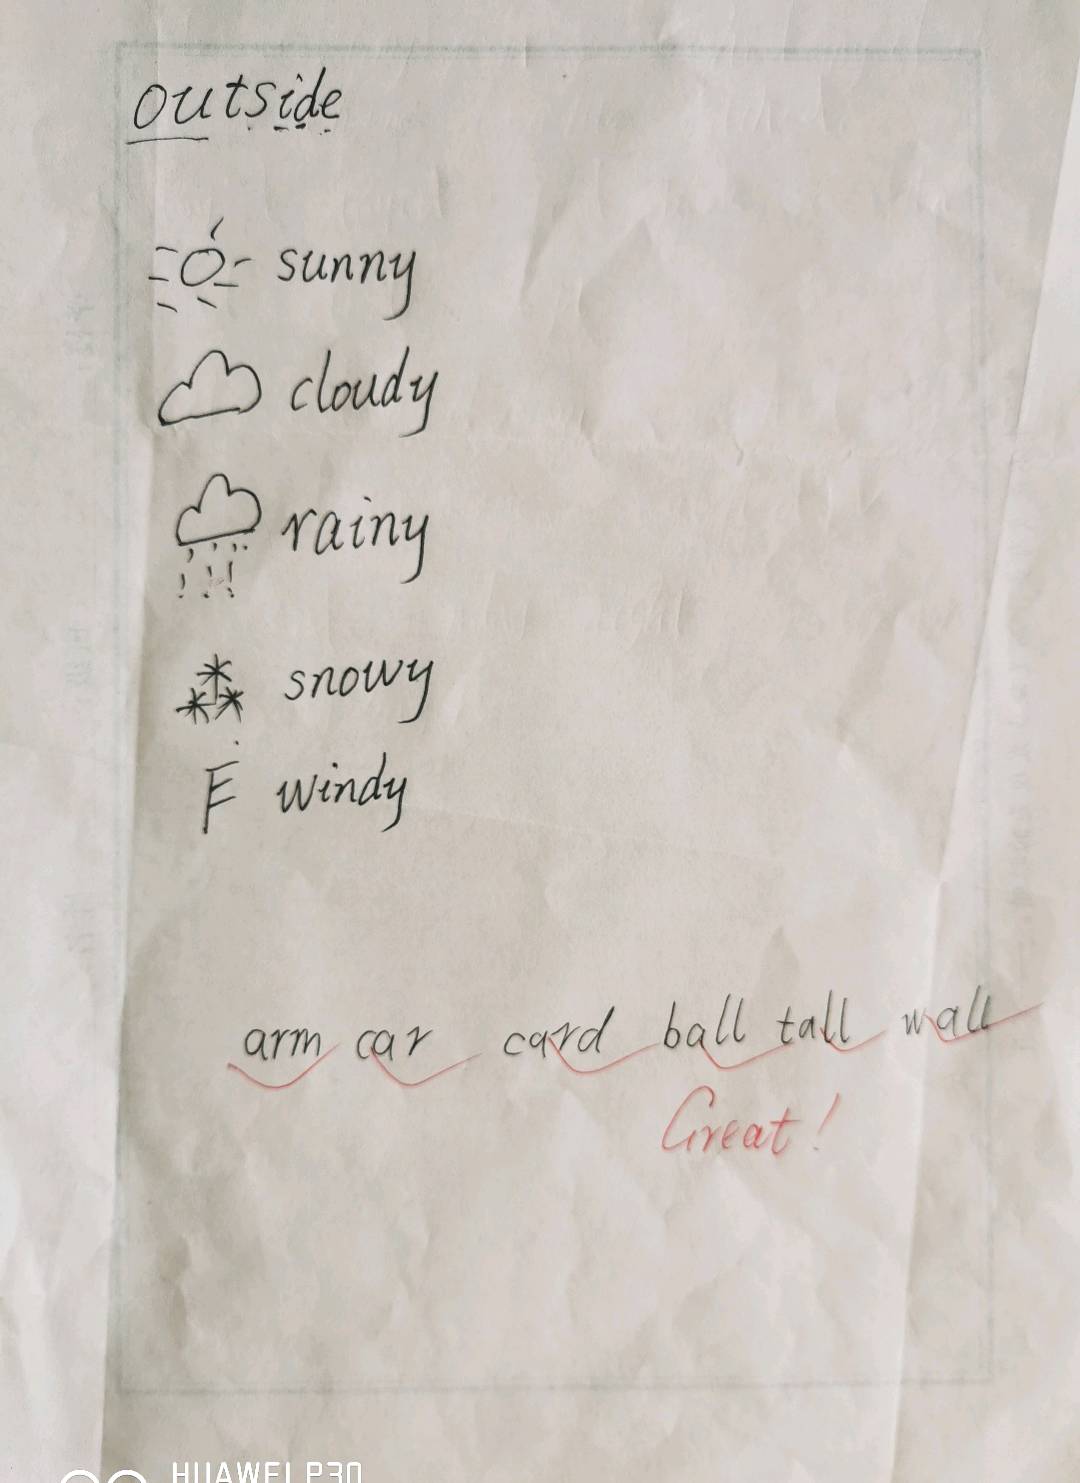 outside
sunny
cloudy
rainy
snowy
F windy
arm car card ball tall wall
Great!
HUAWEI P30